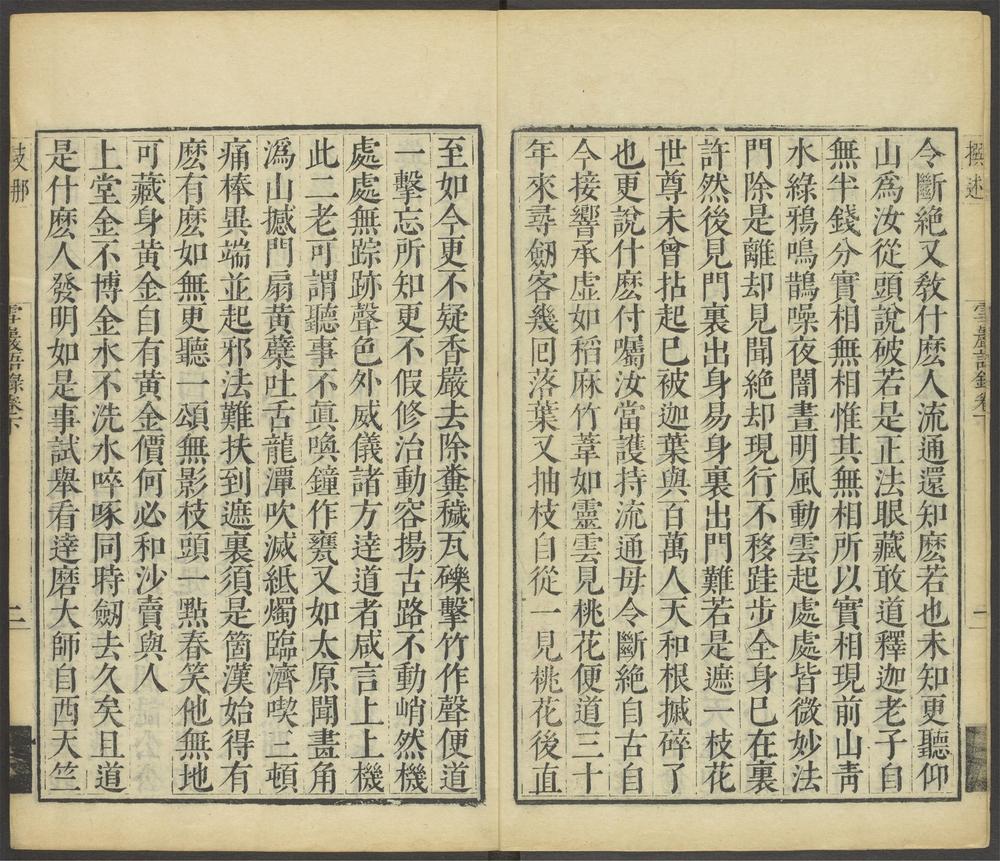 撰述
令斷絕又敎什麽人流通還知麽若也未知更聽仰
山爲汝從頭說破若是正法眼藏敢道釋迦老子自
無半錢分實相無相惟其無相所以實相現前山靑
水綠鴉鳴鵲噪夜闇晝明風動雲起處處皆微妙法
門除是離却見聞絕却現行不移跬步全身已在裏
許然後見門裏出身易身裏出門難若是遮一枝花
世尊未曾拈起已被迦葉與百萬人天和根搣碎了
也更說什麽付囑汝當護持流通毋令斷絕自古自
今接響承虛如稻麻竹葦如靈雲見桃花便道三十
年來尋劒客幾回落葉又抽枝自從一見桃花後直
至如今更不疑香嚴去除糞穢瓦礫擊竹作聲便道
一擊忘所知更不假修治動容揚古路不動悄然機
處處無踪跡聲色外威儀諸方達道者咸言上上機
此二老可謂聽事不眞喚鐘作甕又如太原聞畫角
潙山撼門扇黃蘗吐舌龍潭吹滅紙燭臨濟喫三頓
痛棒異端並起邪法難扶到遮裏須是箇漢始得有
麽有麽如無更聽一頌無影枝頭一點春笑他無地
可藏身黃金自有黃金價何必和沙賣與人
上堂金不博金水不洗水啐啄同時劒去久矣且道
是什麽人發明如是事試舉看達磨大師自西天竺
雪巖語錄卷下
二